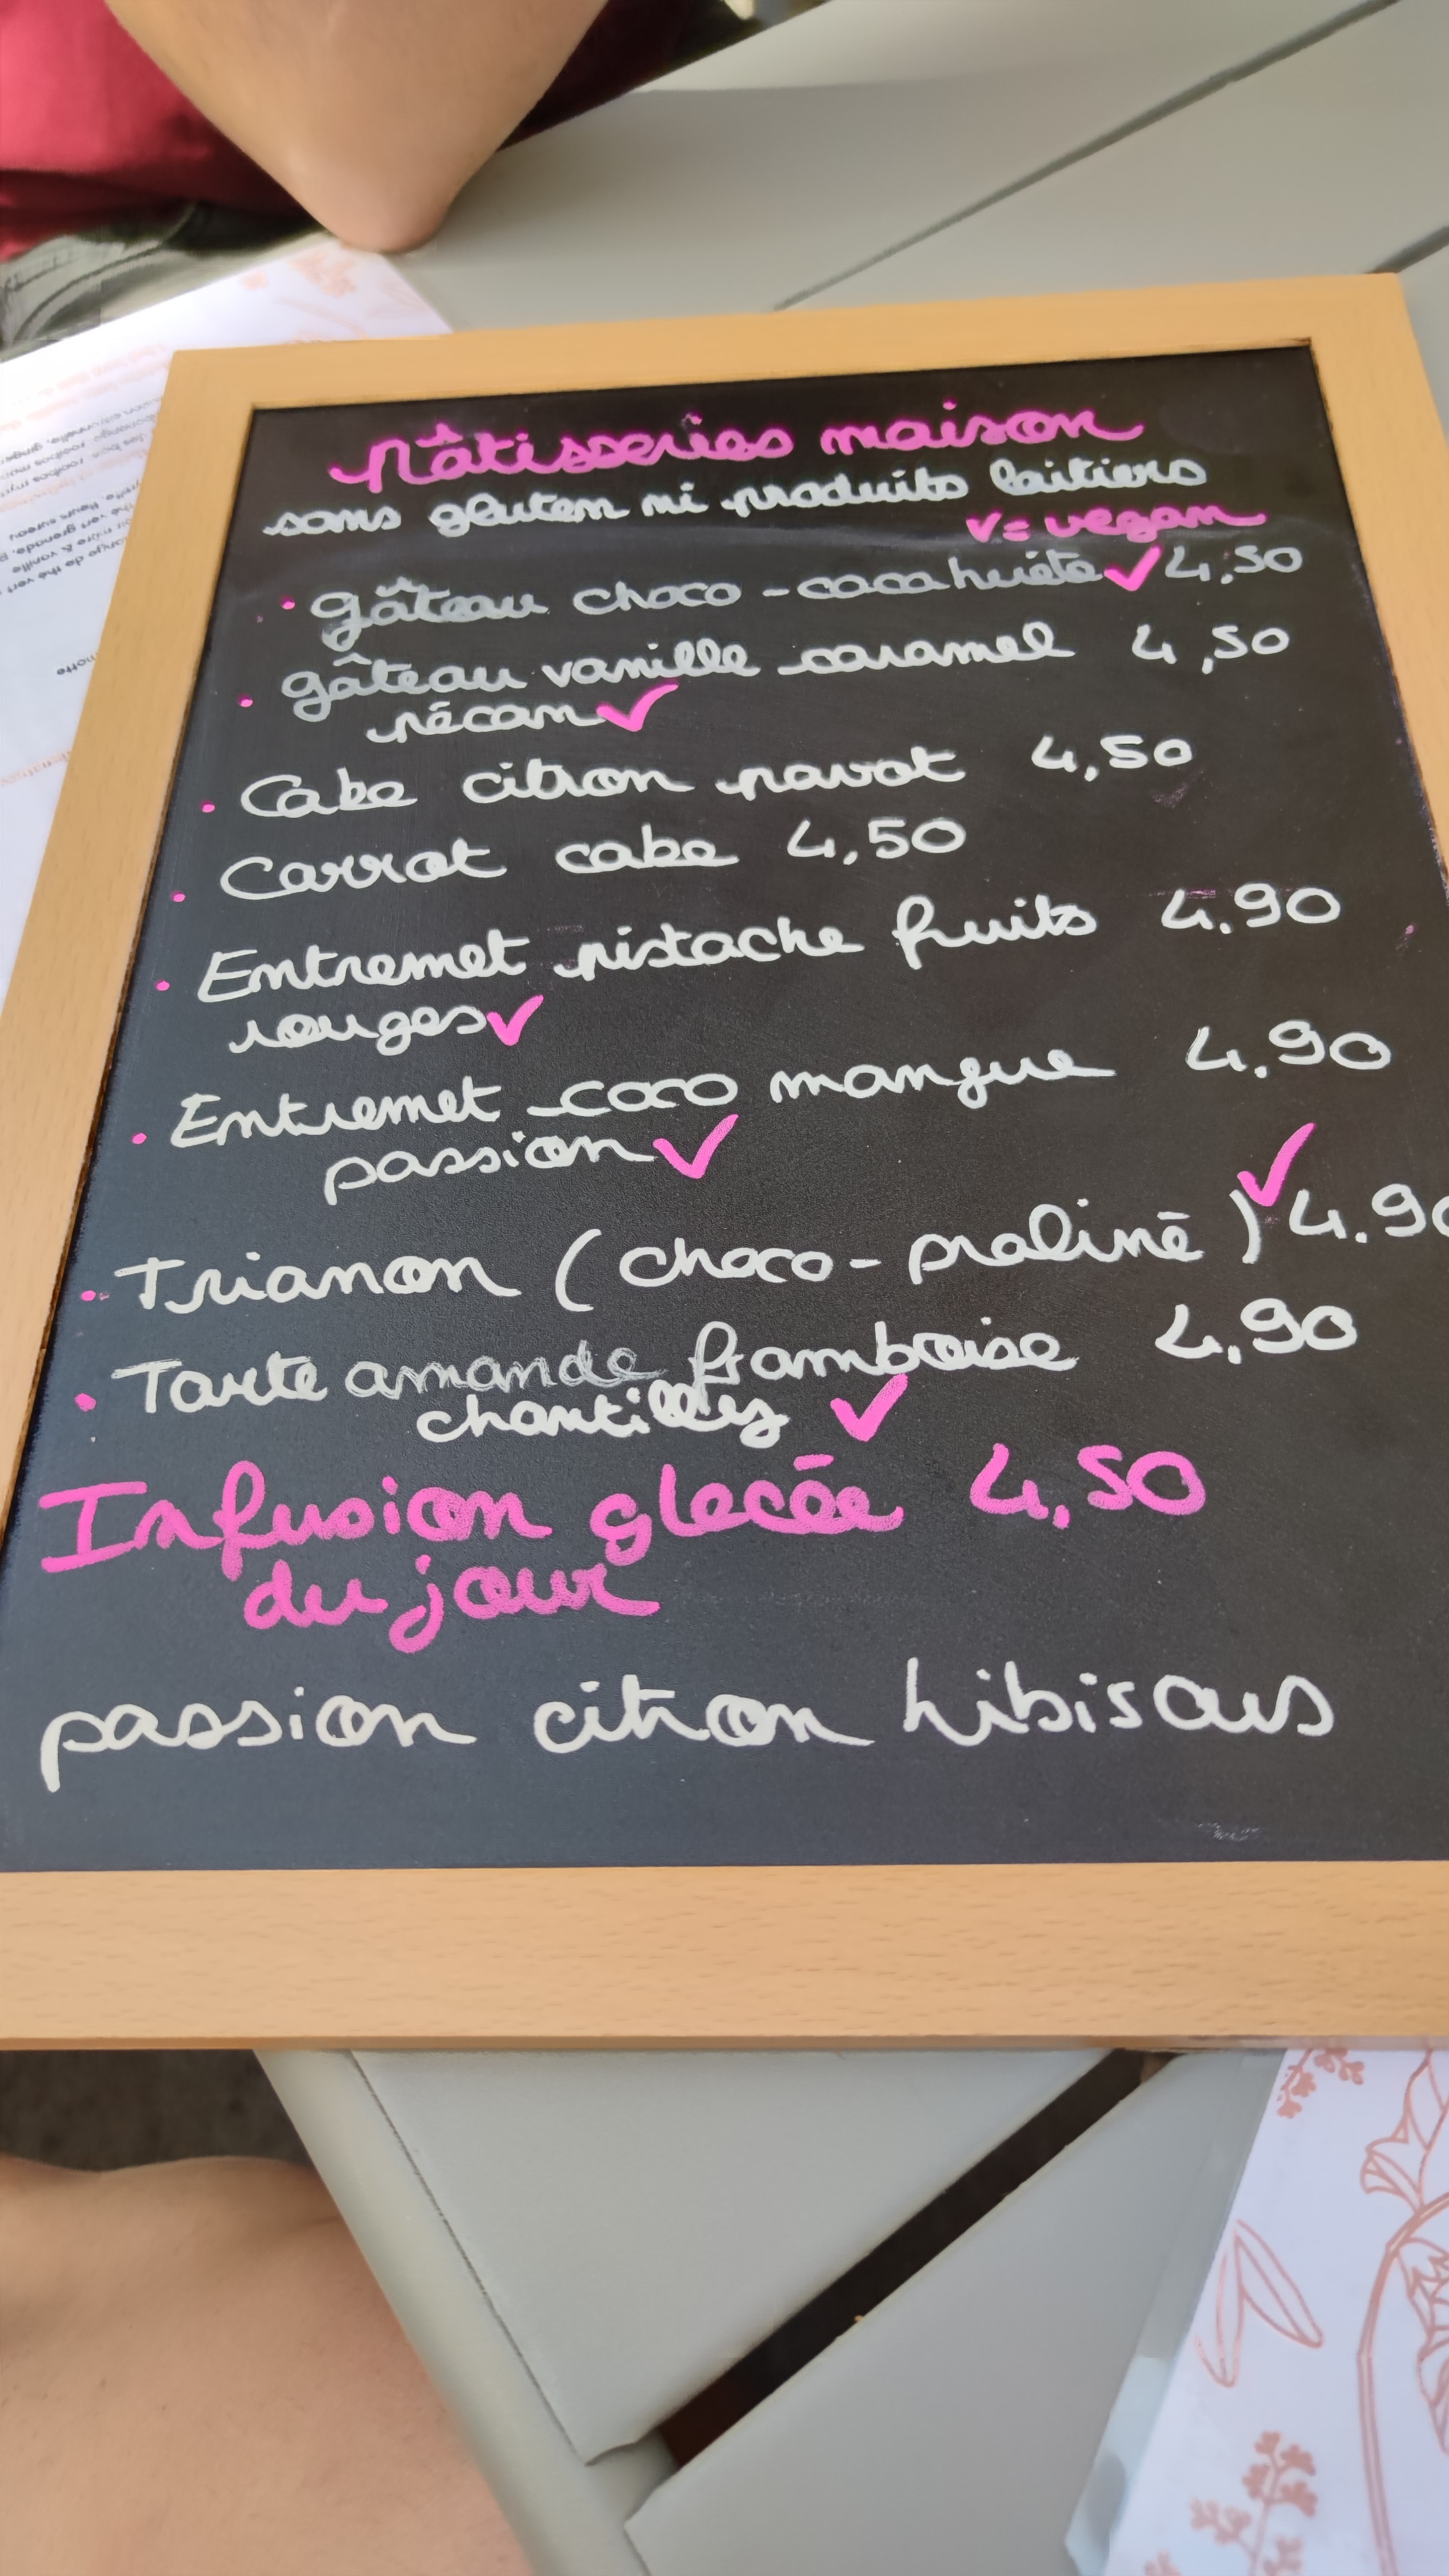 Pâtisseries maison
sans gluten ni produits laitiers
v = vegan
• gâteau choco - cacahuète ✓ 4,50
• gâteau vanille caramel 4,50
pécan ✓
• Cake citron pavot 4,50
• Carrot cake 4,50
• Entremet pistache fruits 4.90
rouges ✓
• Entremet coco mangue 4.90
passion ✓
• Trianon (choco - praliné) ✓ 4.90
• Tarte amande framboise 4.90
chantilly ✓
Infusion glacée 4,50
du jour
passion citron hibiscus